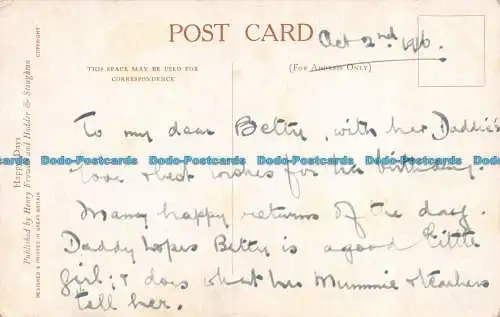 POST CARD
Oct 2nd 1916.
THIS SPACE MAY BE USED FOR
CORRESPONDENCE
(FOR ADDRESS ONLY)
To my dear Betty, with her Daddie's
love & best wishes for her birthday.
Many happy returns of the day.
Daddy hopes Betty is a good little
girl; & does what her Mummie & teachers
tell her.
Happy Days
Published by Henry Frowde and Hodder & Stoughton
DESIGNED & PRINTED IN GREAT BRITAIN
COPYRIGHT
Dodo-Postcards Dodo-Postcards Dodo-Postcards Dodo-Postcards
Dodo-Postcards Dodo-Postcards Dodo-Postcards Dodo-Postcards